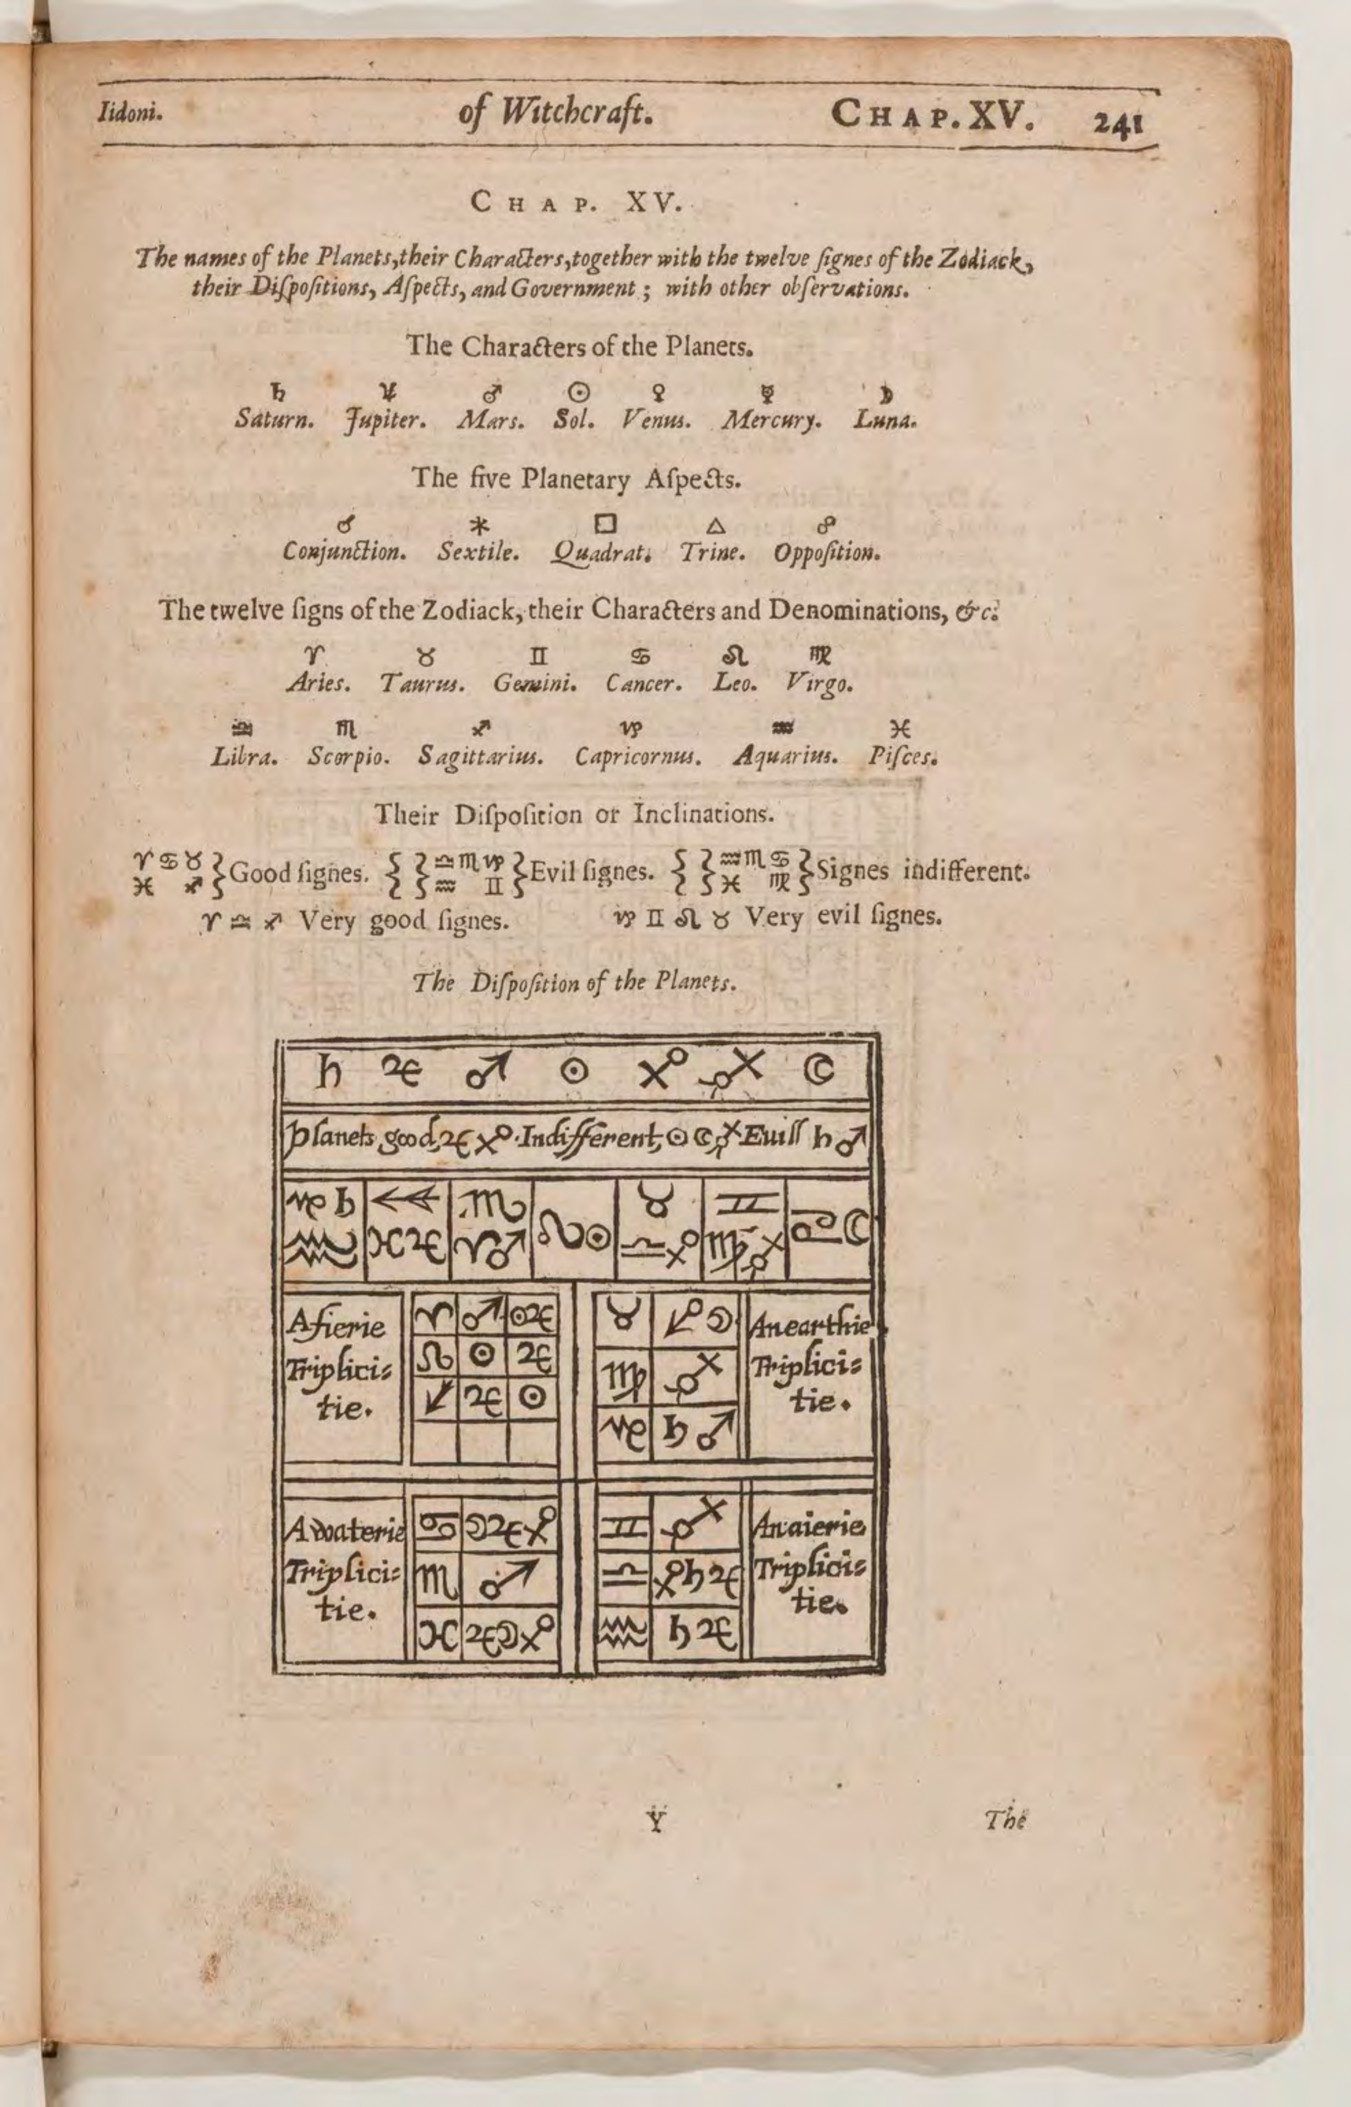 Iidoni. of Witchcraft. CHAP. XV. 241
CHAP. XV.
The names of the Planets, their Characters, together with the twelve ſignes of the Zodiack,
their Diſpoſitions, Aſpects, and Government ; with other obſervations.
The Characters of the Planets.
♄ ♃ ♂ ☉ ♀ ☿ ☽
Saturn. Jupiter. Mars. Sol. Venus. Mercury. Luna.
The five Planetary Aſpects.
☌ ⚹ □ △ ☍
Conjunction. Sextile. Quadrat. Trine. Oppoſition.
The twelve ſigns of the Zodiack, their Characters and Denominations, &c.
♈ ♉ ♊ ♋ ♌ ♍
Aries. Taurus. Gemini. Cancer. Leo. Virgo.
♎ ♏ ♐ ♑ ♒ ♓
Libra. Scorpio. Sagittarius. Capricornus. Aquarius. Piſces.
Their Diſpoſition or Inclinations.
♈ ♋ ♉ ♓ ♐ } Good ſignes. { } ♎ ♏ ♑ ♒ ♊ } Evil ſignes. { } ♒ ♏ ♋ ♓ ♍ } Signes indifferent.
♈ ♎ ♐ Very good ſignes. ♑ ♊ ♌ ♉ Very evil ſignes.
The Diſpoſition of the Planets.
♄ ♃ ♂ ☉ ♀ ☿ ☾
Planets good, ♃ ♀. Indifferent, ☉ ☾ ☿ Euill ♄ ♂
♑ ♄ ♐ ♏ ♌ ☉ ♉ ♊ ♋ ☾
♒ ♓ ♃ ♈ ♂ ♎ ♀ ♍ ☿
A fierie
Triplici=
tie.
♈ ♂ ☉ ♃
♌ ☉ ♃
♐ ♃ ☉
♉ ♀ ☽
♍ ☿
♑ ♄ ♂
An earthie
Triplici=
tie.
A waterie
Triplici=
tie.
♋ ☽ ♃ ♀
♏ ♂
♓ ♃ ☽ ♀
♊ ☿
♎ ♀ ♄ ♃
♒ ♄ ♃
An aierie
Triplici=
tie.
Y The